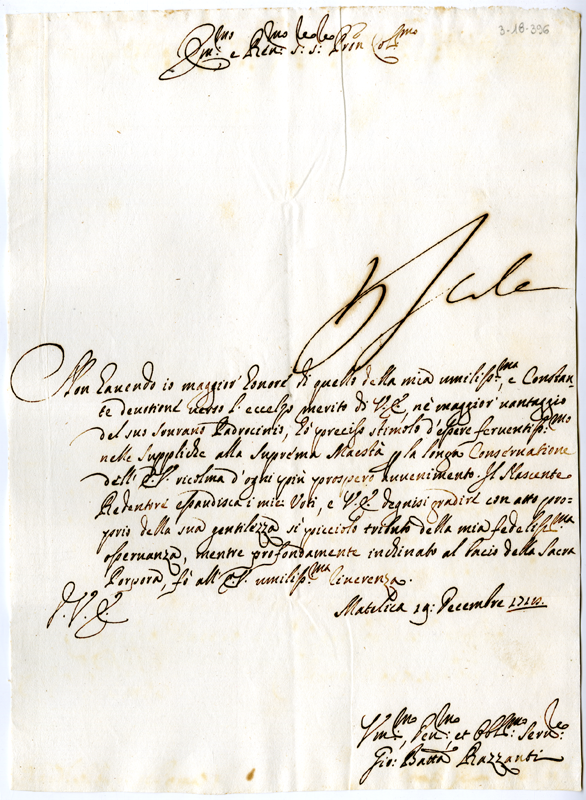 3-18-396
Em.mo e Re.mo Sig.re Sig.re Pron Col.mo
Non hauendo io maggior' honore di quello della mia umiliss.ma, e Constan-
te deuotione uerso l'eccelso merito di V.E., nè maggior' uantaggio
del suo sourano Padrocinio, hò preciso stimolo d'essere feruentiss.mo
nelle Suppliche alla Suprema Maestà p la longa Conseruatione
dell' E.V. ricolma d'ogni più prospero auuenimento. Il Nascente
Redentore esaudisca i miei Voti, e V.E. degnisi gradire con atto pro-
prio della sua gentilezza si picciolo tributo della mia fedeliss.ma
osseruanza, mentre profondamente inchinato al bacio della Sacra
Porpora, fò all' E.V. umiliss.ma riuerenza.
D. V. E.
Matelica 19: Decembre
Vm.mo, Deu.mo et Obl.mo Seru.re
Gio: Batta Razzanti